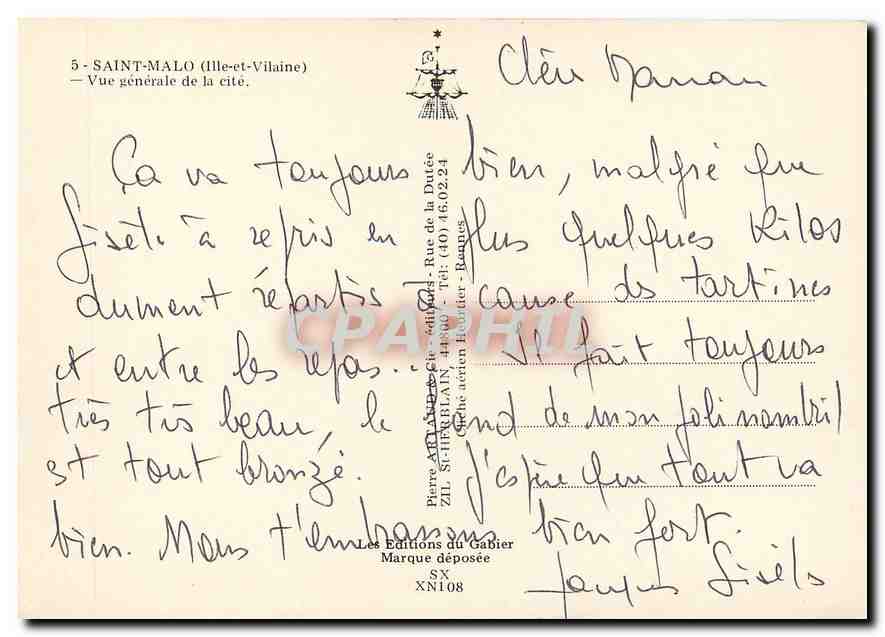 5 - SAINT-MALO (Ille-et-Vilaine)
— Vue générale de la cité.
Chère Maman
Ça va toujours bien, malgré que
Gisèle a repris en plus quelques kilos
dument répartis à cause des tartines
et entre les repas... Il fait toujours
très très beau, le fond de mon joli nombril
est tout bronzé. J'espère que tout va
bien. Nous t'embrassons bien fort.
Jacques Gisèle
Pierre ARTAUD & Cie - éditeurs - Rue de la Dutée
ZIL St-HERBLAIN, 44800 - Tél: (40) 46.02.24
Cliché aérien Heurtier - Rennes
Les Editions du Gabier
Marque déposée
SX
XN108
CPAPHIL